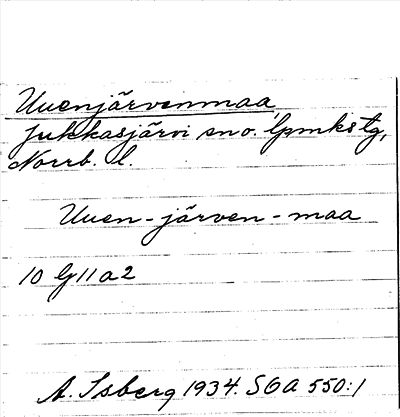 Uuenjärvenmaa,
Jukkasjärvi sno. lpmkstg,
Norrb. l.
Uuen-järven-maa
10 G11a2
A. Isberg 1934. SOA 550:1